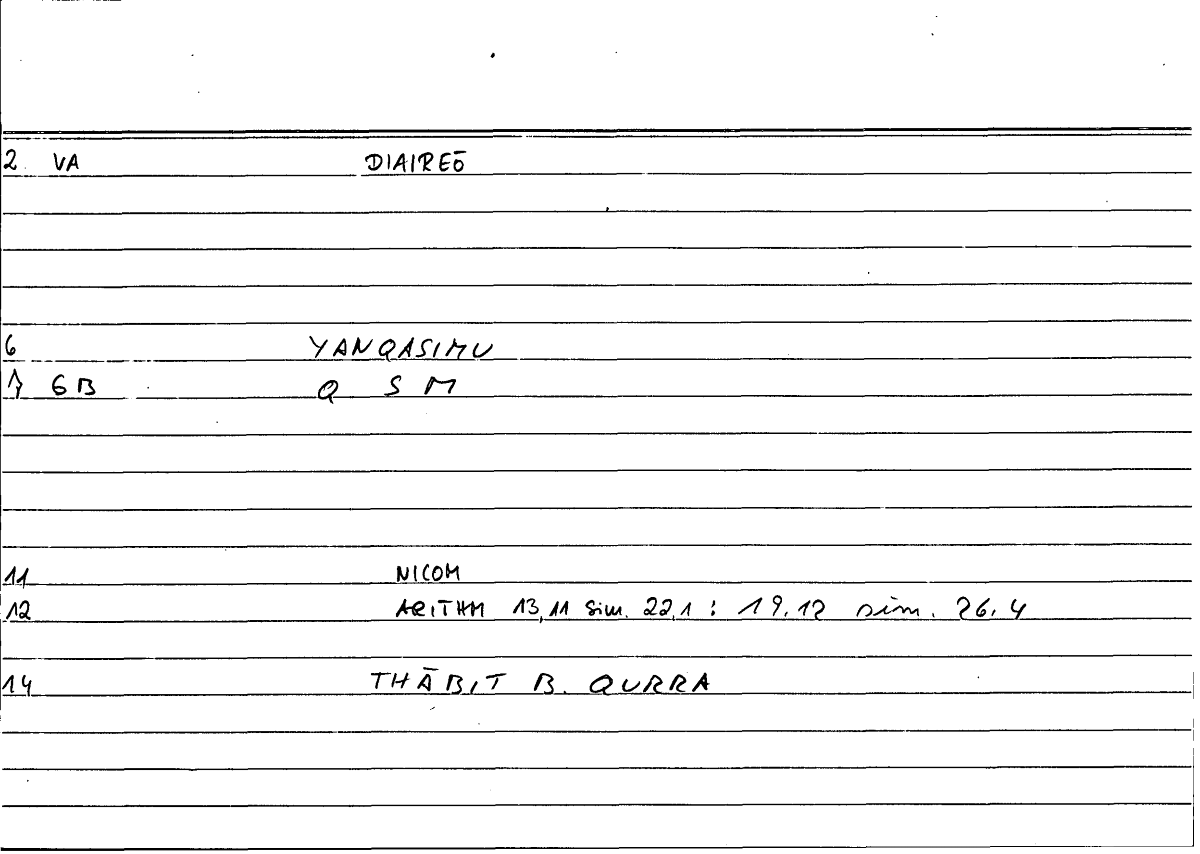 2 VA DIAIREŌ
6 YANQASIMU
7 GB Q S M
11 NICOM
12 ARITHM 13,11 sim. 22,1 : 19.12 sim. 26.4
14 THĀBIT B. QURRA